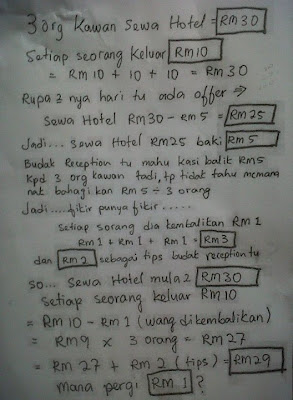 3 org Kawan Sewa Hotel = RM30
Setiap seorang Keluar RM10
= RM10 + 10 + 10 = RM30
Rupa2 nya hari tu ada offer →
Sewa Hotel RM30 - RM5 = RM25
Jadi... Sewa Hotel RM25 baki RM5
Budak Reception tu mahu kasi balik RM5
kpd 3 org kawan tadi, tp tidak tahu mcmana
nak bahagikan RM5 ÷ 3 orang
Jadi.....fikir punya fikir.....
Setiap sorang dia kembalikan RM1
RM1 + RM1 + RM1 = RM3
dan RM2 sebagai tips budak reception tu
so... Sewa Hotel mula2 RM30
Setiap seorang keluar RM10
= RM10 - RM1 (wang dikembalikan)
= RM9 x 3 orang = RM27
= RM27 + RM2 (tips) = RM29
mana pergi RM.1 ?